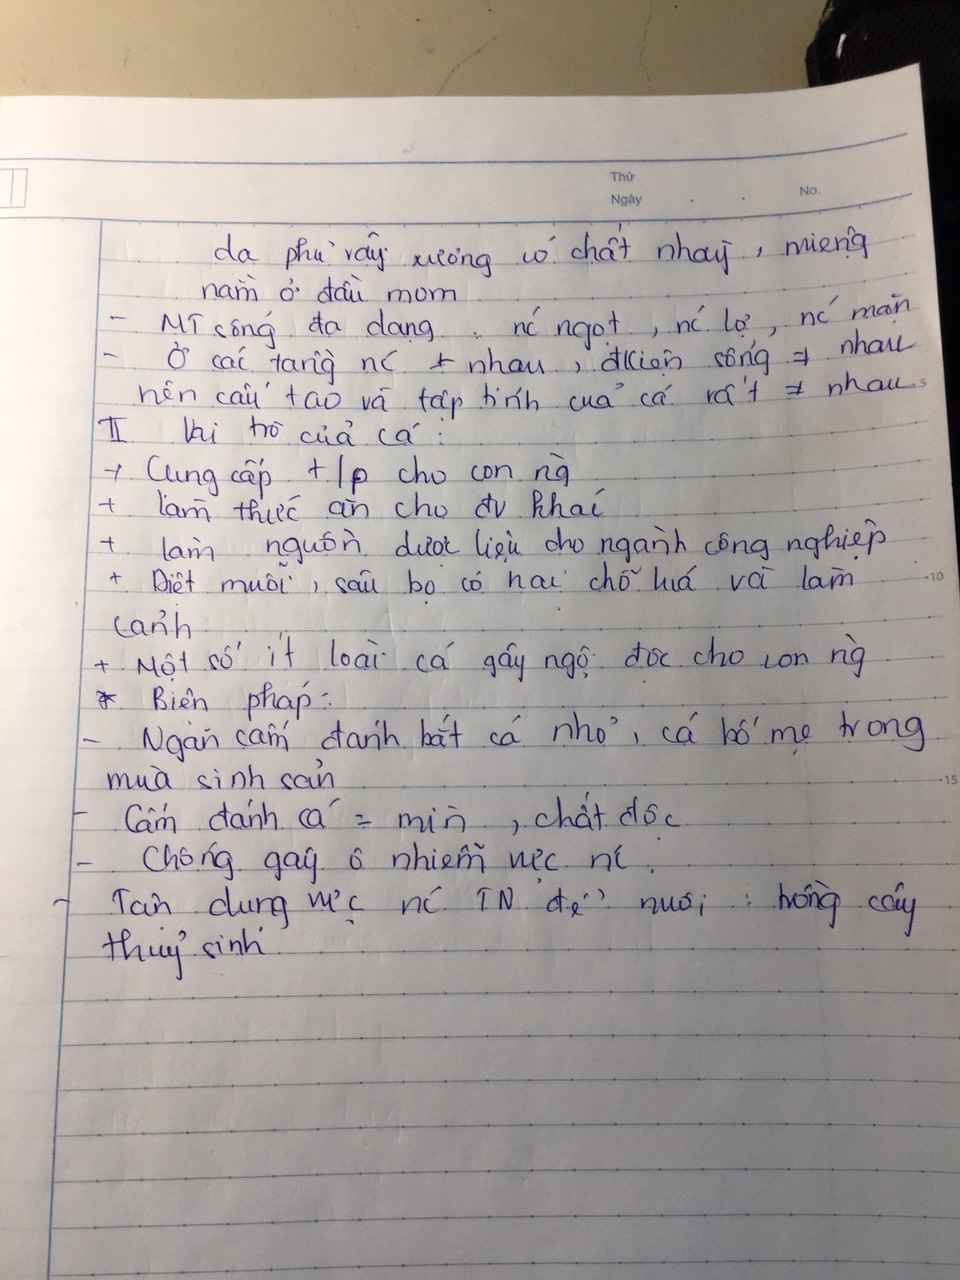 Thứ
Ngày . .
No.
da phủ vảy xương có chất nhầy, miệng
nằm ở đầu mõm
- MT sống đa dạng : nc ngọt, nc lợ, nc mặn
- Ở các tầng nc ≠ nhau, đkiện sống ≠ nhau
nên cấu tạo và tập tính của cá rất ≠ nhau
5
II Vai trò của cá :
+ Cung cấp t/p cho con ng
+ làm thức ăn cho đv khác
+ làm nguồn dược liệu cho ngành công nghiệp
+ Diệt muỗi, sâu bọ có hại cho lúa và làm
10
cảnh
+ Một số ít loài cá gây ngộ độc cho con ng
* Biện pháp :
- Ngăn cấm đánh bắt cá nhỏ, cá bố mẹ trong
mùa sinh sản
15
- Cấm đánh cá = mìn, chất độc
- Chống gây ô nhiễm vực nc.
- Tận dụng vực nc TN để nuôi : trồng cây
thuỷ sinh